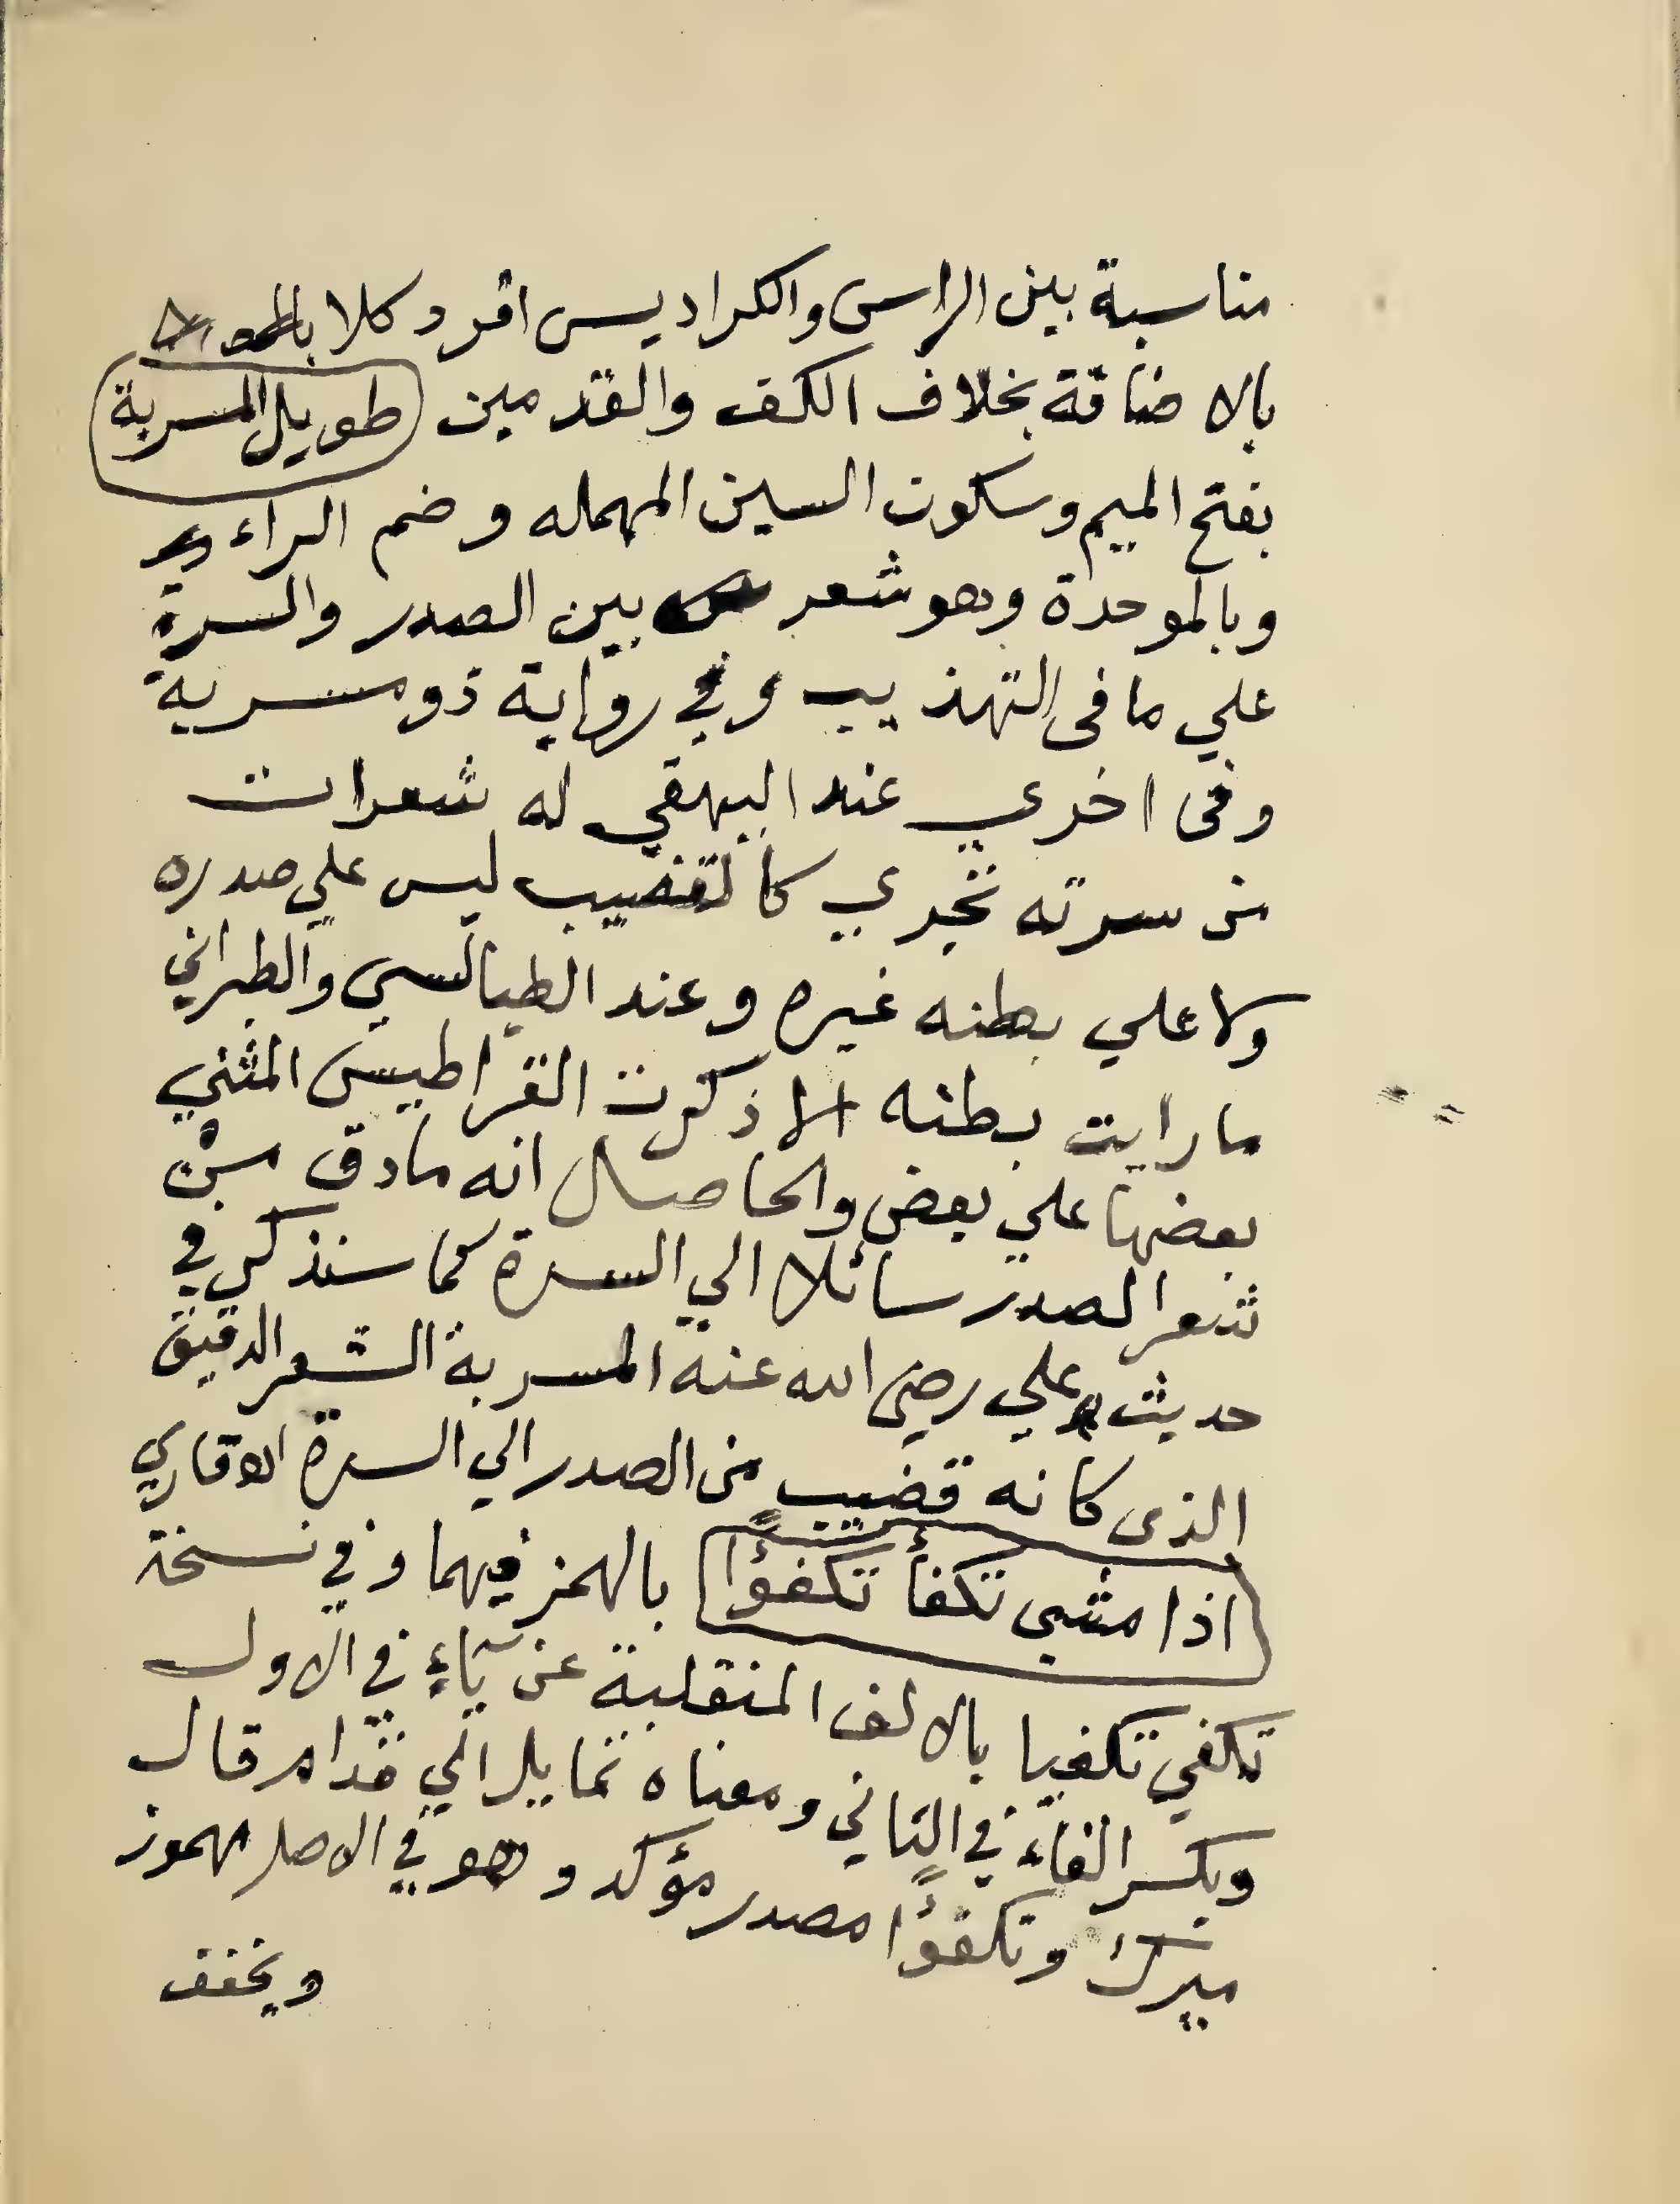 مناسبة بين الراس والكراديس افرد كلا
بالاضافة بخلاف الكف والقدمين طويل المسربة
بفتح الميم وسكون السين المهمله وضم الراء
وبالموحدة وهو شعر بين الصدر والسرة
علي ما في التهذيب وفي رواية ذو مسربة
وفي اخري عند البيهقي له شعرات
من سرته تجري كالقضيب ليس علي صدره
ولا علي بطنه غيره وعند الطيالسي والطبراني
ما رايت بطنه الا ذكرت القراطيس المثني
بعضها علي بعض والحاصل انه مادق من
شعر الصدر سائلا الي السرة كما سنذكر في
حديث علي رضي الله عنه المسربة الشعر الدقيق
الذي كانه قضيب من الصدر الي السرة
اذا مشي تكفأ تكفؤًا بالهمز فيهما وفي نسخة
تكفي تكفيا بالالف المنقلبة عن ياء في الاول
وبكسر الفاء في الثاني ومعناه تمايل الي قدام قال
ميرك وتكفؤًا مصدر مؤكد وهو في الاصل مهموز
ويخفف